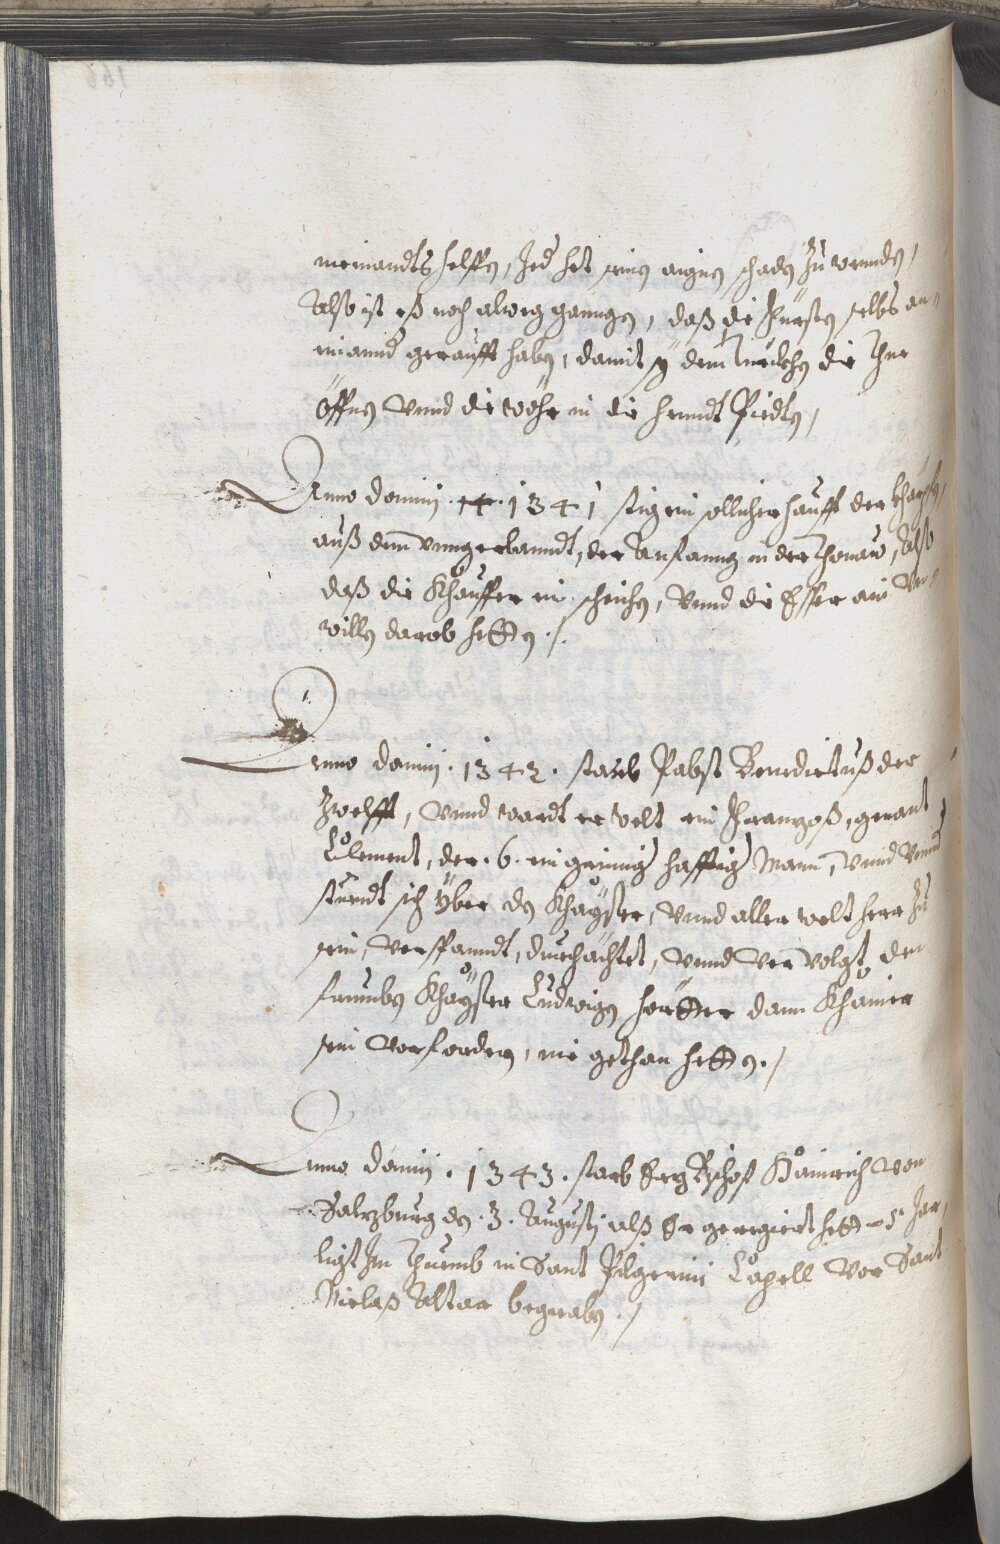 niemandts helffen, Jed het seinen aignen schaden zu wenden,
Also ist eß noch alweg ganngen, daß die Fürsten selbs an
einannd gerauft haben, damit sy dem Türckhen die Thür
öffnen vnnd die wöhr in die hanndt
Anno domini .1341 stig ein sollicher hauff der
auß dem vnngerlanndt, der Anfanng in der Thonaw, Also
daß die Khauffer ein scheichen, vnnd die Esser ain Vn
willen darob hetten ./
Anno domini .1342. starb Pabst Benedictuß der
Zwelfft, vnnd wardt er welt ein Franzoß, genant
Clement, der .6. ein grimmig haffig Mann, vnnd vnnd
stundt sich über den Khayser, vnnd aller welt herr zu
sein, verpanndt, durchächtet, vnnd ver volgt den
frumben Khayser Ludwigen hertter dann Khainer
sein Vorfordern, nie gethan hetten ./
Anno domini .1343. starb Ertz Bschof Hainrich von
Salzburg den .3. Augustj alß Er geregiert hett 5 Jar,
ligt Im Thuemb in Sant Pilgerini Capell vor Sant
Niclaß Altar begraben ./